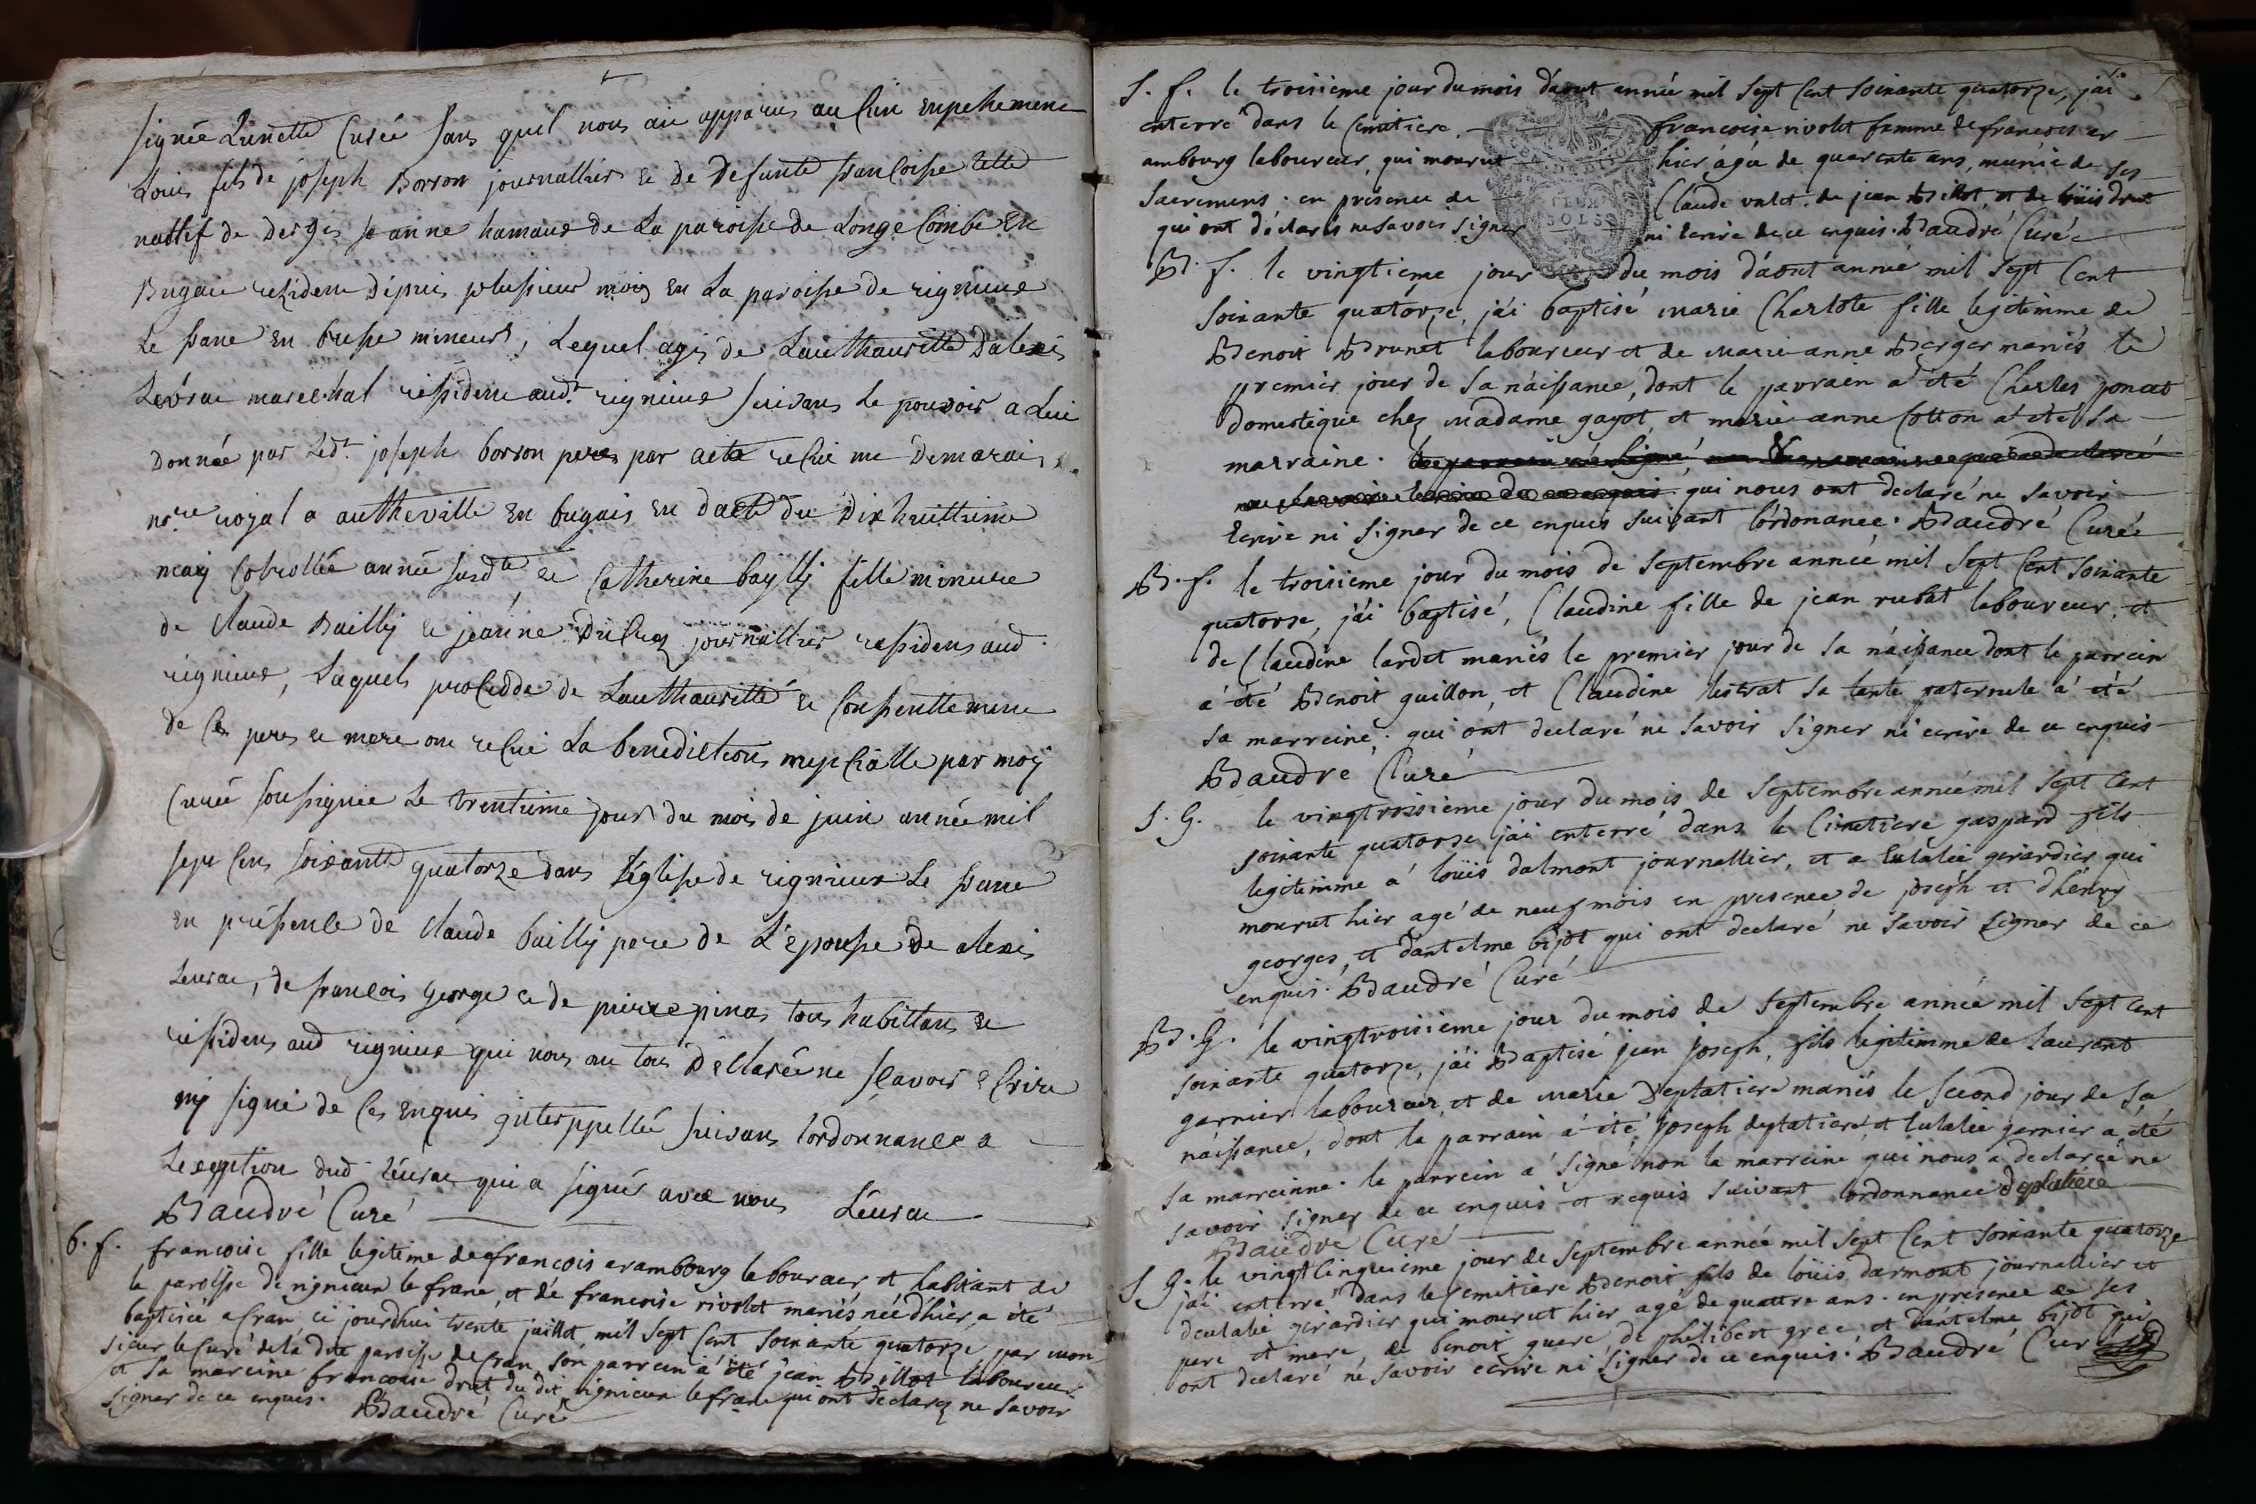 signée Lunette Curée sans quil nous aie apparus aucun enpehemene
Louis fils de joseph Borron journallier ee de Defunte francoise
nattif de jeanne hamaux de La paroisse de Longe Combe en
Bugaie rezidene Depuis plussieur mois en La paroisse de rignieux
Le frane en bresse mineur, Lequel agis de Lauthauritté D'alexis
Levrae marechal ressidene audt rignieux suivans Le pouvoir a Lui
Donnée par Ledt joseph borron pere par acte reçue me Demarais
nore royal a autheville en bugais en datte du Dix huittieme
may année susdte, ee Catherine baylly fille mineure
de Claude Bailly ee jeanne journallier ressidens aud
rignieux, Laquels procedde de Lauthauritté ee Conssenttemene
de Ces pere ee mere one reçue La benediction nupciälle par moÿ
Curée soussignée Le trentieme jour du mois de juin année mil
sept Cens soixantte quatorze dans L'eglisse de rignieux Le frane
en pressence de Claude bailly pere de L'epousse De alexis
Leurae, de francois George ee de pierre pinas tous habittans ee
ressidens aud rignieux qui nous one tous Déclarée ne sçavoir ecrire
ny signé de Ces enquis ynterppellée suivans lordonnance a
Lexception dud Leurae qui a signés avee nous Leurae
Baudré Curé
b. f. francoise fille legitime de francois arambourg laboureur et habitant de
la paroisse de rignieux le franc, et de francoise rivolet mariés née d'hier, a été
baptisée a Cran, ce jourdhui trente juillet mil sept Cent soixante quatorze par mon
sieur le Curé de la dite paroisse de Cran, son parrein a été jean Billot laboureur
et sa marreine francoise dret du dit rignieux le franc qui ont declarez ne savoir
signer de ce enquis. Baudré Curé
S. f. le troisieme jour du mois d'aout année mil sept Cent soixante quatorze, j'ai
enterré dans le Cimetiere francoise rivolet femme de francois ar
ambourg laboureur, qui mourut hier agée de quarente ans, munie de ses
sacremens. en présence de Claude valet de jean Billot, et de loüis dret
qui ont déclaré ne savoir signer ni ecrire de ce enquis. Baudré Curé
DEUX
SOLS
B. f. le vingtieme jour du mois d'aout année mil sept Cent
soixante quatorze, j'ai baptisé marie Charlote fille legitimme de
Benoit Brunet laboureur et de marie anne Berger mariés le
premier jour de sa náissance, dont le parrain a été Charles poncet
domestique chez madame gayot, et marie anne Cotton a été sa
marraine. qui nous ont declaré ne savoir
Ecrire ni signer de ce enquis suivant lordonance. Baudré Curé
B. f. le troisieme jour du mois de septembre année mil sept Cent soixante
quatorse, j'ái baptisé, Claudine fille de jean rubat laboureur, et
de Claudine lardet mariés le premier jour de sa náissance dont le parrein
a été Benoit guillon, et Claudine sa tante paternele a été
sa marreine; qui ont declaré ne savoir signer ni ecrire de ce enquis
Baudre Curé
S. G. le vingtroisieme jour du mois de septembre année mil sept Cent
soixante quatorze j'ai enterré dans le Cimetiére gaspard fils
legitimme a loüis dalmont journallier, et a Eulalie girardier qui
mourut hier agé de neuf mois en presence de joseph et d'hénry
georges, et d'antelme bijot qui ont declaré ne savoir signer de ce
enquis. Baudré Curé
B. G. le vingtroisieme jour du mois de septembre année mil sept Cent
soixante quatorze, j'ái Baptisé jean joseph, fils legitimme de laurent
garnier laboureur, et de marie Deplatiere mariés le second jour de sa
náissance, dont le parrain a été joseph deplatiere et Eulalie garnier a été
sa marreinne. le parrein a signé non la marreine qui nous a declarée ne
savoir signer de ce enquis et requis suivant lordonnance Deplatiere
Baudre Curé
S. G. le vingt Cinquieme jour de septembre année mil sept Cent soixante quatorze
j'ái enterré dans le semitiere Benoit fils de loüis darmont journallier et
deulalie girardier qui mourut hier agé de quattre ans. en presence de ses
pere et mere, de benoit guere de philibert grec et d'antelme bijot qui
ont declaré ne savoir ecrire ni signer de ce enquis. Baudré Cur